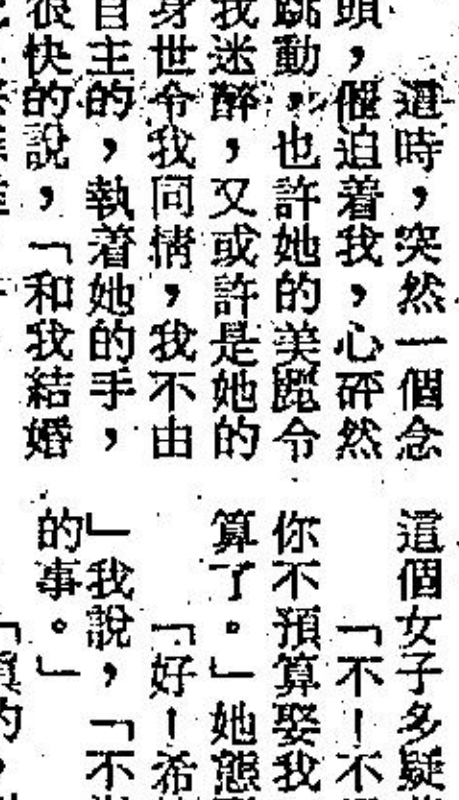 這時，突然一個念
頭，催迫着我，心砰然
跳動，也許她的美麗令
我迷醉，又或許是她的
身世令我同情，我不由
自主的，執着她的手，
很快的說，「和我結婚
這個女子多疑
「不！不
你不預算娶我
算了。」她態
「好！希
」我說，「不
的事。」
「真的，